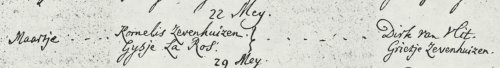 22 Mey.
Maartje . . . . Kornelis Zevenhuizen. } . . . . . . Dirk van Vlit.
Gijsje La Ros. Grietje Zevenhuizen.
29 Mey.